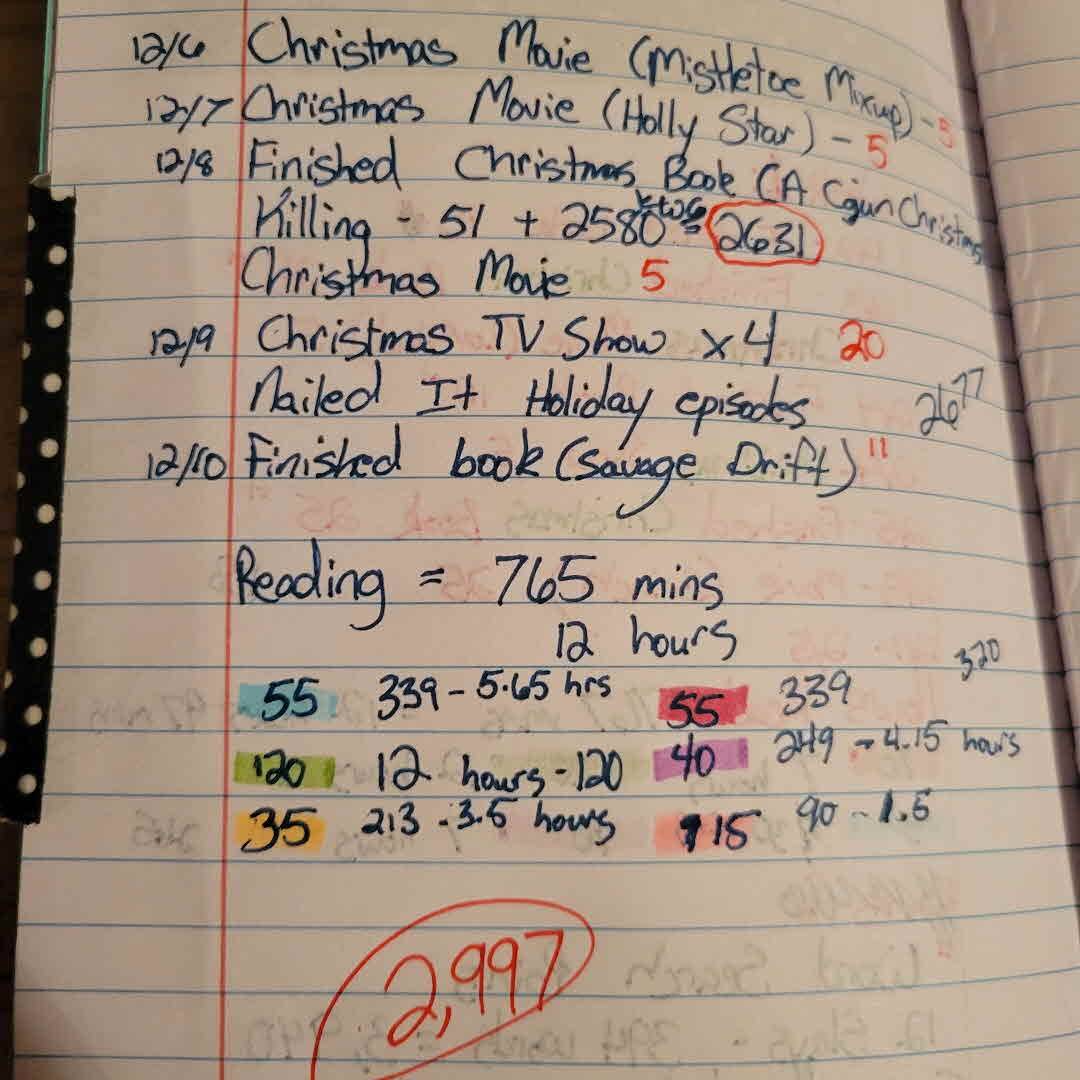 12/6 Christmas Movie (Mistletoe Mixup) - 5
12/7 Christmas Movie (Holly Star) - 5
12/8 Finished Christmas Book (A Cajun Christmas
Killing - 51 + 2580 = 2631
Christmas Movie 5
12/9 Christmas TV Show x4 20
Nailed It Holiday episodes 2677
12/10 Finished book (Savage Drift) 11
Reading = 765 mins
12 hours
320
55 339 - 5.65 hrs 55 339
120 12 hours - 120 40 249 - 4.15 hours
35 213 - 3.5 hours 15 90 - 1.5
2,997